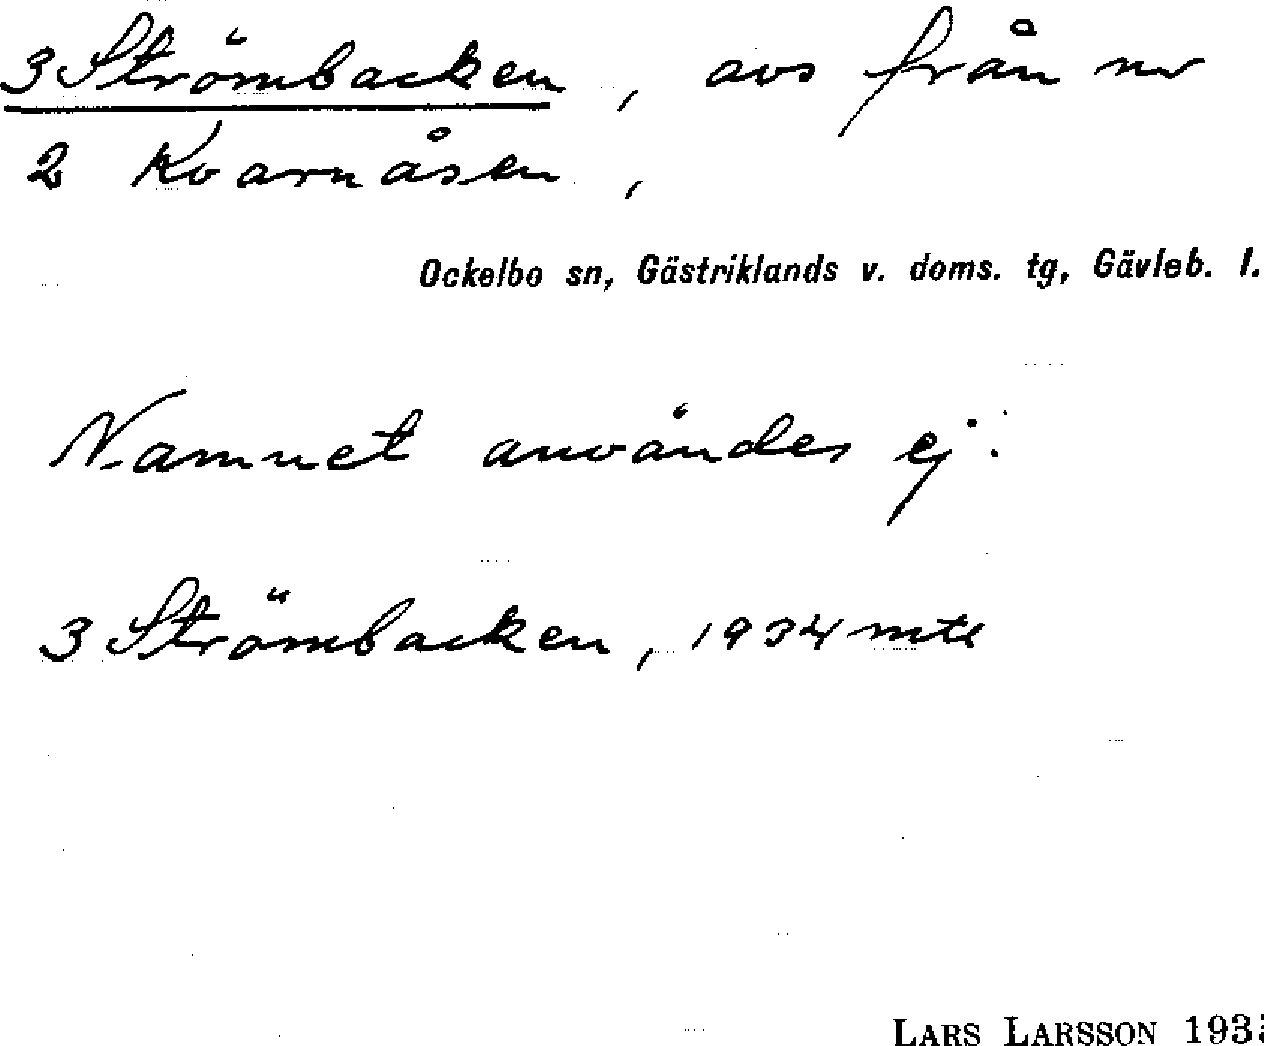 3 Strömbacken, avs från nr
2 Kvarnåsen,
Ockelbo sn, Gästriklands v. doms. tg, Gävleb. l.
Namnet användes ej.
3 Strömbacken, 1934 mtl
LARS LARSSON